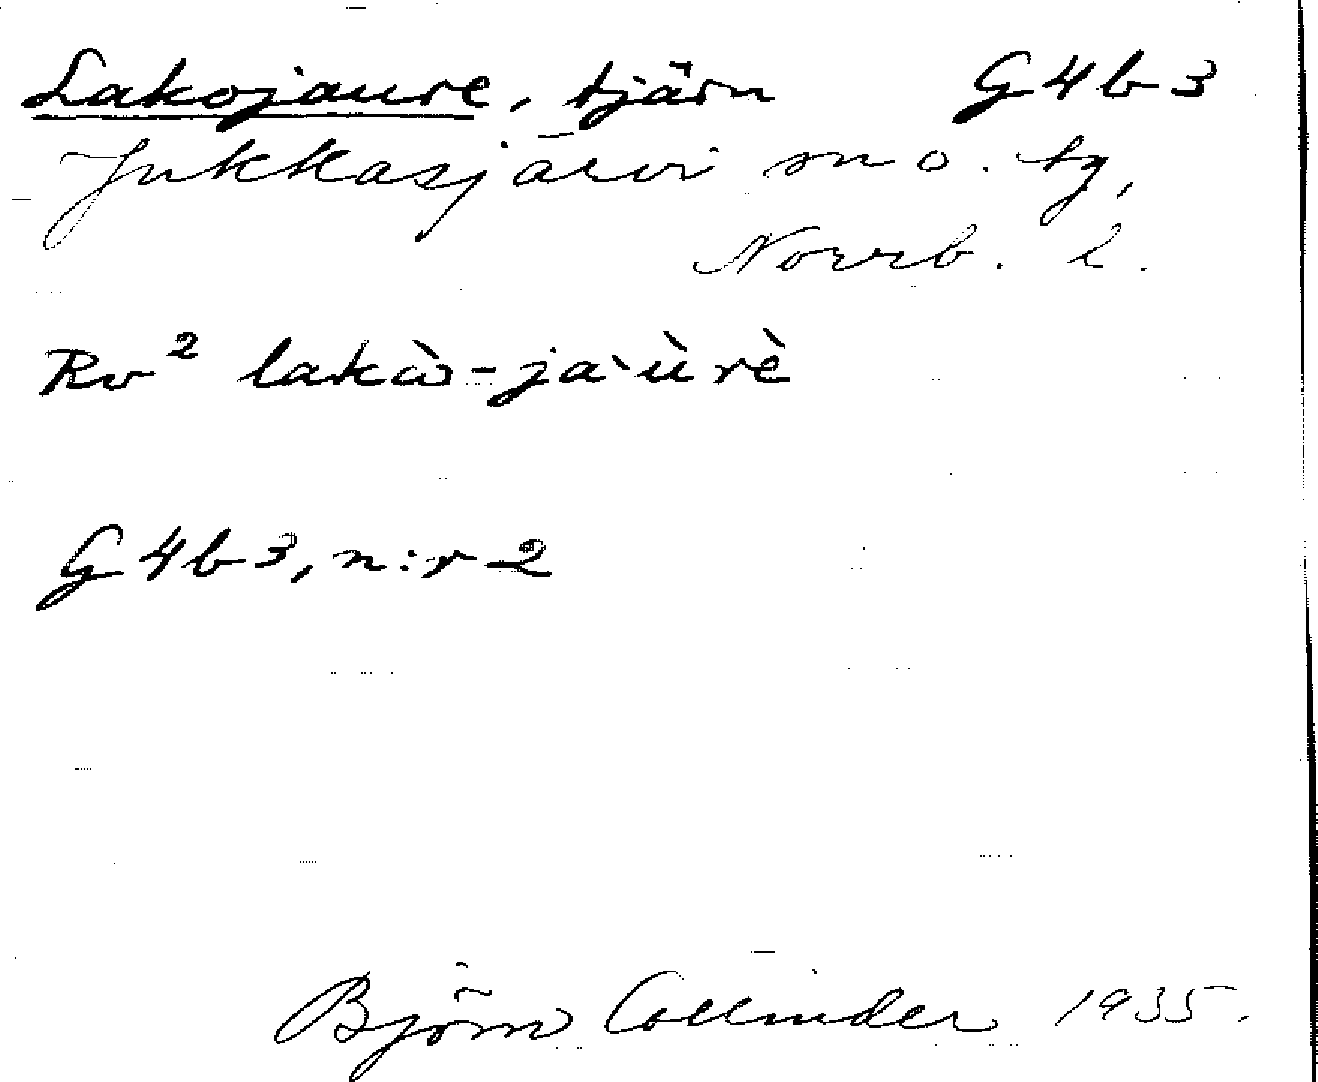 Lakojaure, tjärn G4b3
Jukkasjärvi sn o. tg,
Norrb. l.
Rv² lakò-ja`ùrè
G4b3, n:r 2
Björn Collinder 1935.